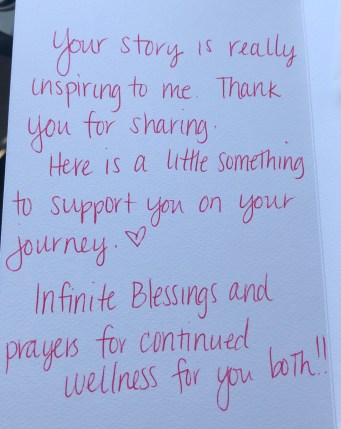 Your story is really
inspiring to me. Thank
you for sharing.
Here is a little something
to support you on your
journey. ♡
Infinite Blessings and
prayers for continued
wellness for you both!!